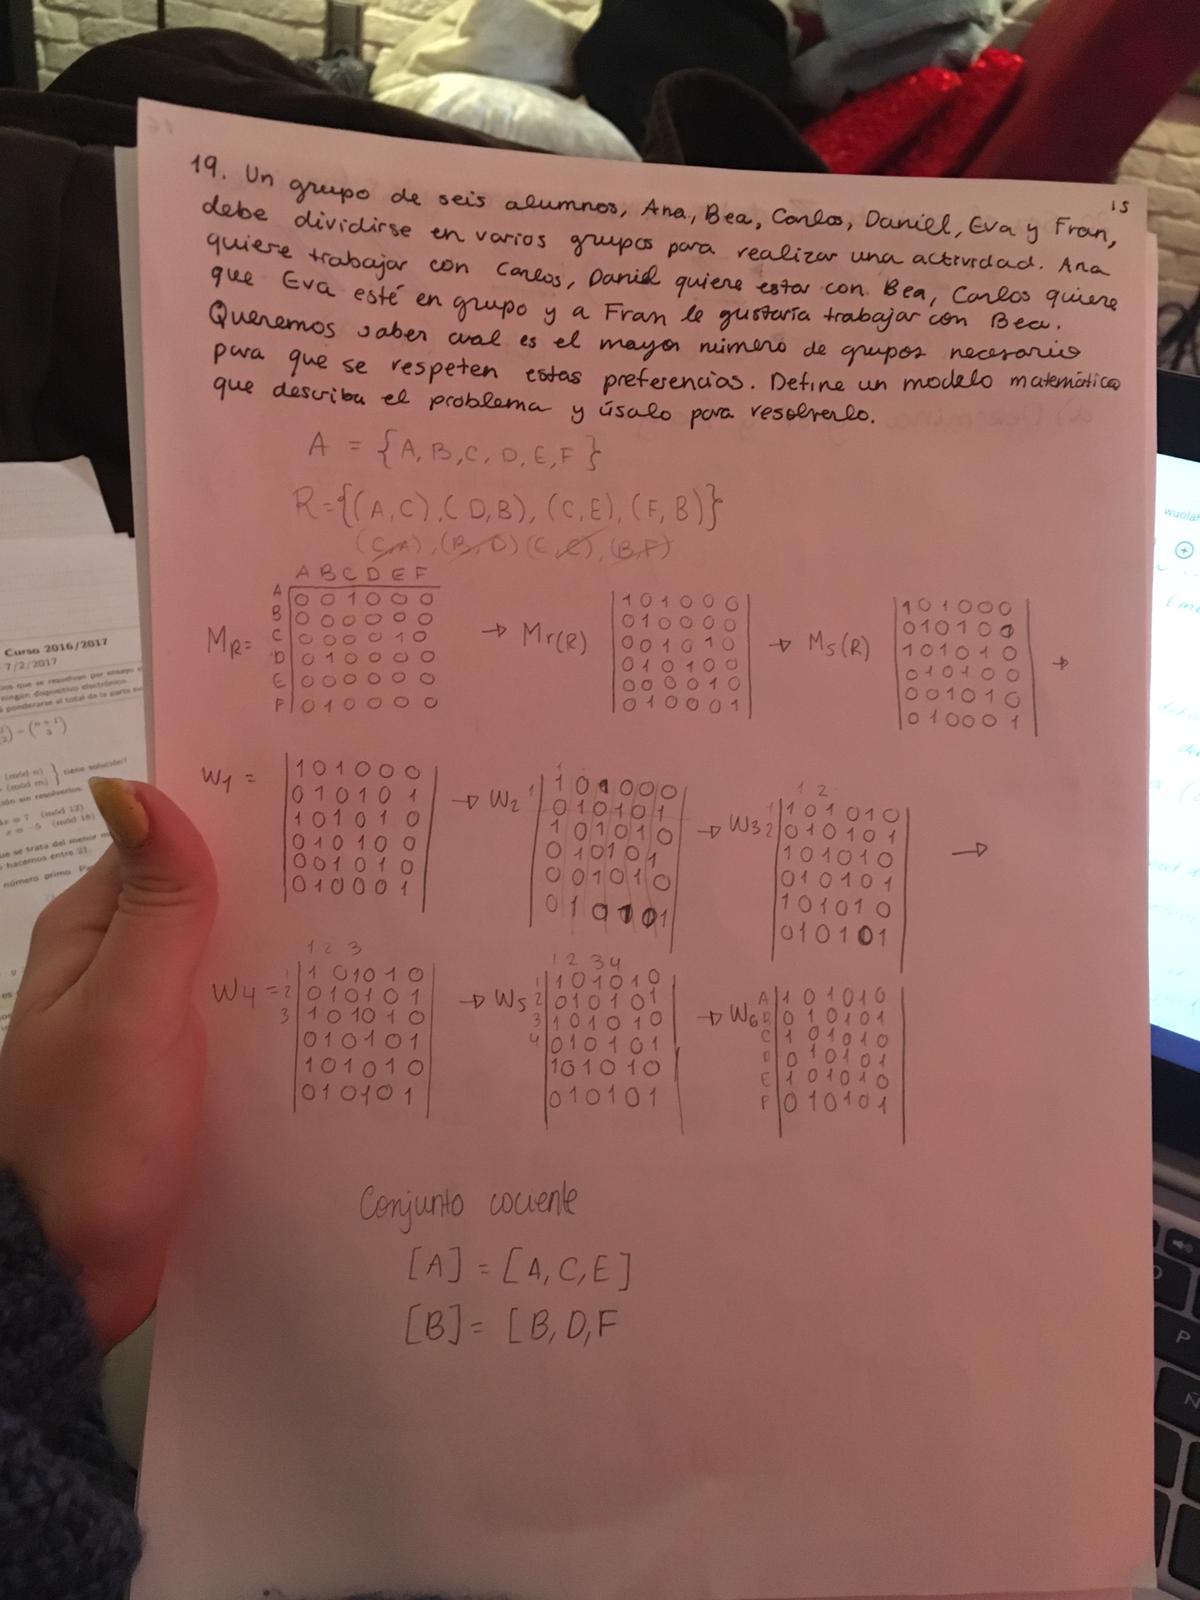 15
19. Un grupo de seis alumnos, Ana, Bea, Carlos, Daniel, Eva y Fran,
debe dividirse en varios grupos para realizar una actividad. Ana
quiere trabajar con Carlos, Daniel quiere estar con Bea, Carlos quiere
que Eva esté en grupo y a Fran le gustaría trabajar con Bea.
Queremos saber cual es el mayor número de grupos necesario
para que se respeten estas preferencias. Define un modelo matemático
que describa el problema y úsalo para resolverlo.
A = {A, B, C, D, E, F}
R = {(A, C), (D, B), (C, E), (F, B)}
(C, A), (B, D) (E, C), (B, F)
A B C D E F
A 0 0 1 0 0 0
B 0 0 0 0 0 0
MR= C 0 0 0 0 1 0
D 0 1 0 0 0 0
E 0 0 0 0 0 0
F 0 1 0 0 0 0
→ Mr(R)
1 0 1 0 0 0
0 1 0 0 0 0
0 0 1 0 1 0
0 1 0 1 0 0
0 0 0 0 1 0
0 1 0 0 0 1
→ Ms(R)
1 0 1 0 0 0
0 1 0 1 0 0
1 0 1 0 1 0
0 1 0 1 0 0
0 0 1 0 1 0
0 1 0 0 0 1
→
W1 =
1 0 1 0 0 0
0 1 0 1 0 1
1 0 1 0 1 0
0 1 0 1 0 0
0 0 1 0 1 0
0 1 0 0 0 1
→ W2
1
1 0 1 0 0 0
0 1 0 1 0 1
1 0 1 0 1 0
0 1 0 1 0 1
0 0 1 0 1 0
0 1 0 1 0 1
→ W3
1 2
1 1 0 1 0 1 0
2 0 1 0 1 0 1
1 0 1 0 1 0
0 1 0 1 0 1
1 0 1 0 1 0
0 1 0 1 0 1
→
W4 =
1 2 3
1 1 0 1 0 1 0
2 0 1 0 1 0 1
3 1 0 1 0 1 0
0 1 0 1 0 1
1 0 1 0 1 0
0 1 0 1 0 1
→ W5
1 2 3 4
1 1 0 1 0 1 0
2 0 1 0 1 0 1
3 1 0 1 0 1 0
4 0 1 0 1 0 1
1 0 1 0 1 0
0 1 0 1 0 1
→ W6
A 1 0 1 0 1 0
B 0 1 0 1 0 1
C 1 0 1 0 1 0
D 0 1 0 1 0 1
E 1 0 1 0 1 0
F 0 1 0 1 0 1
Conjunto cociente
[A] = [A, C, E]
[B] = [B, D, F
Curso 2016/2017
7/2/2017